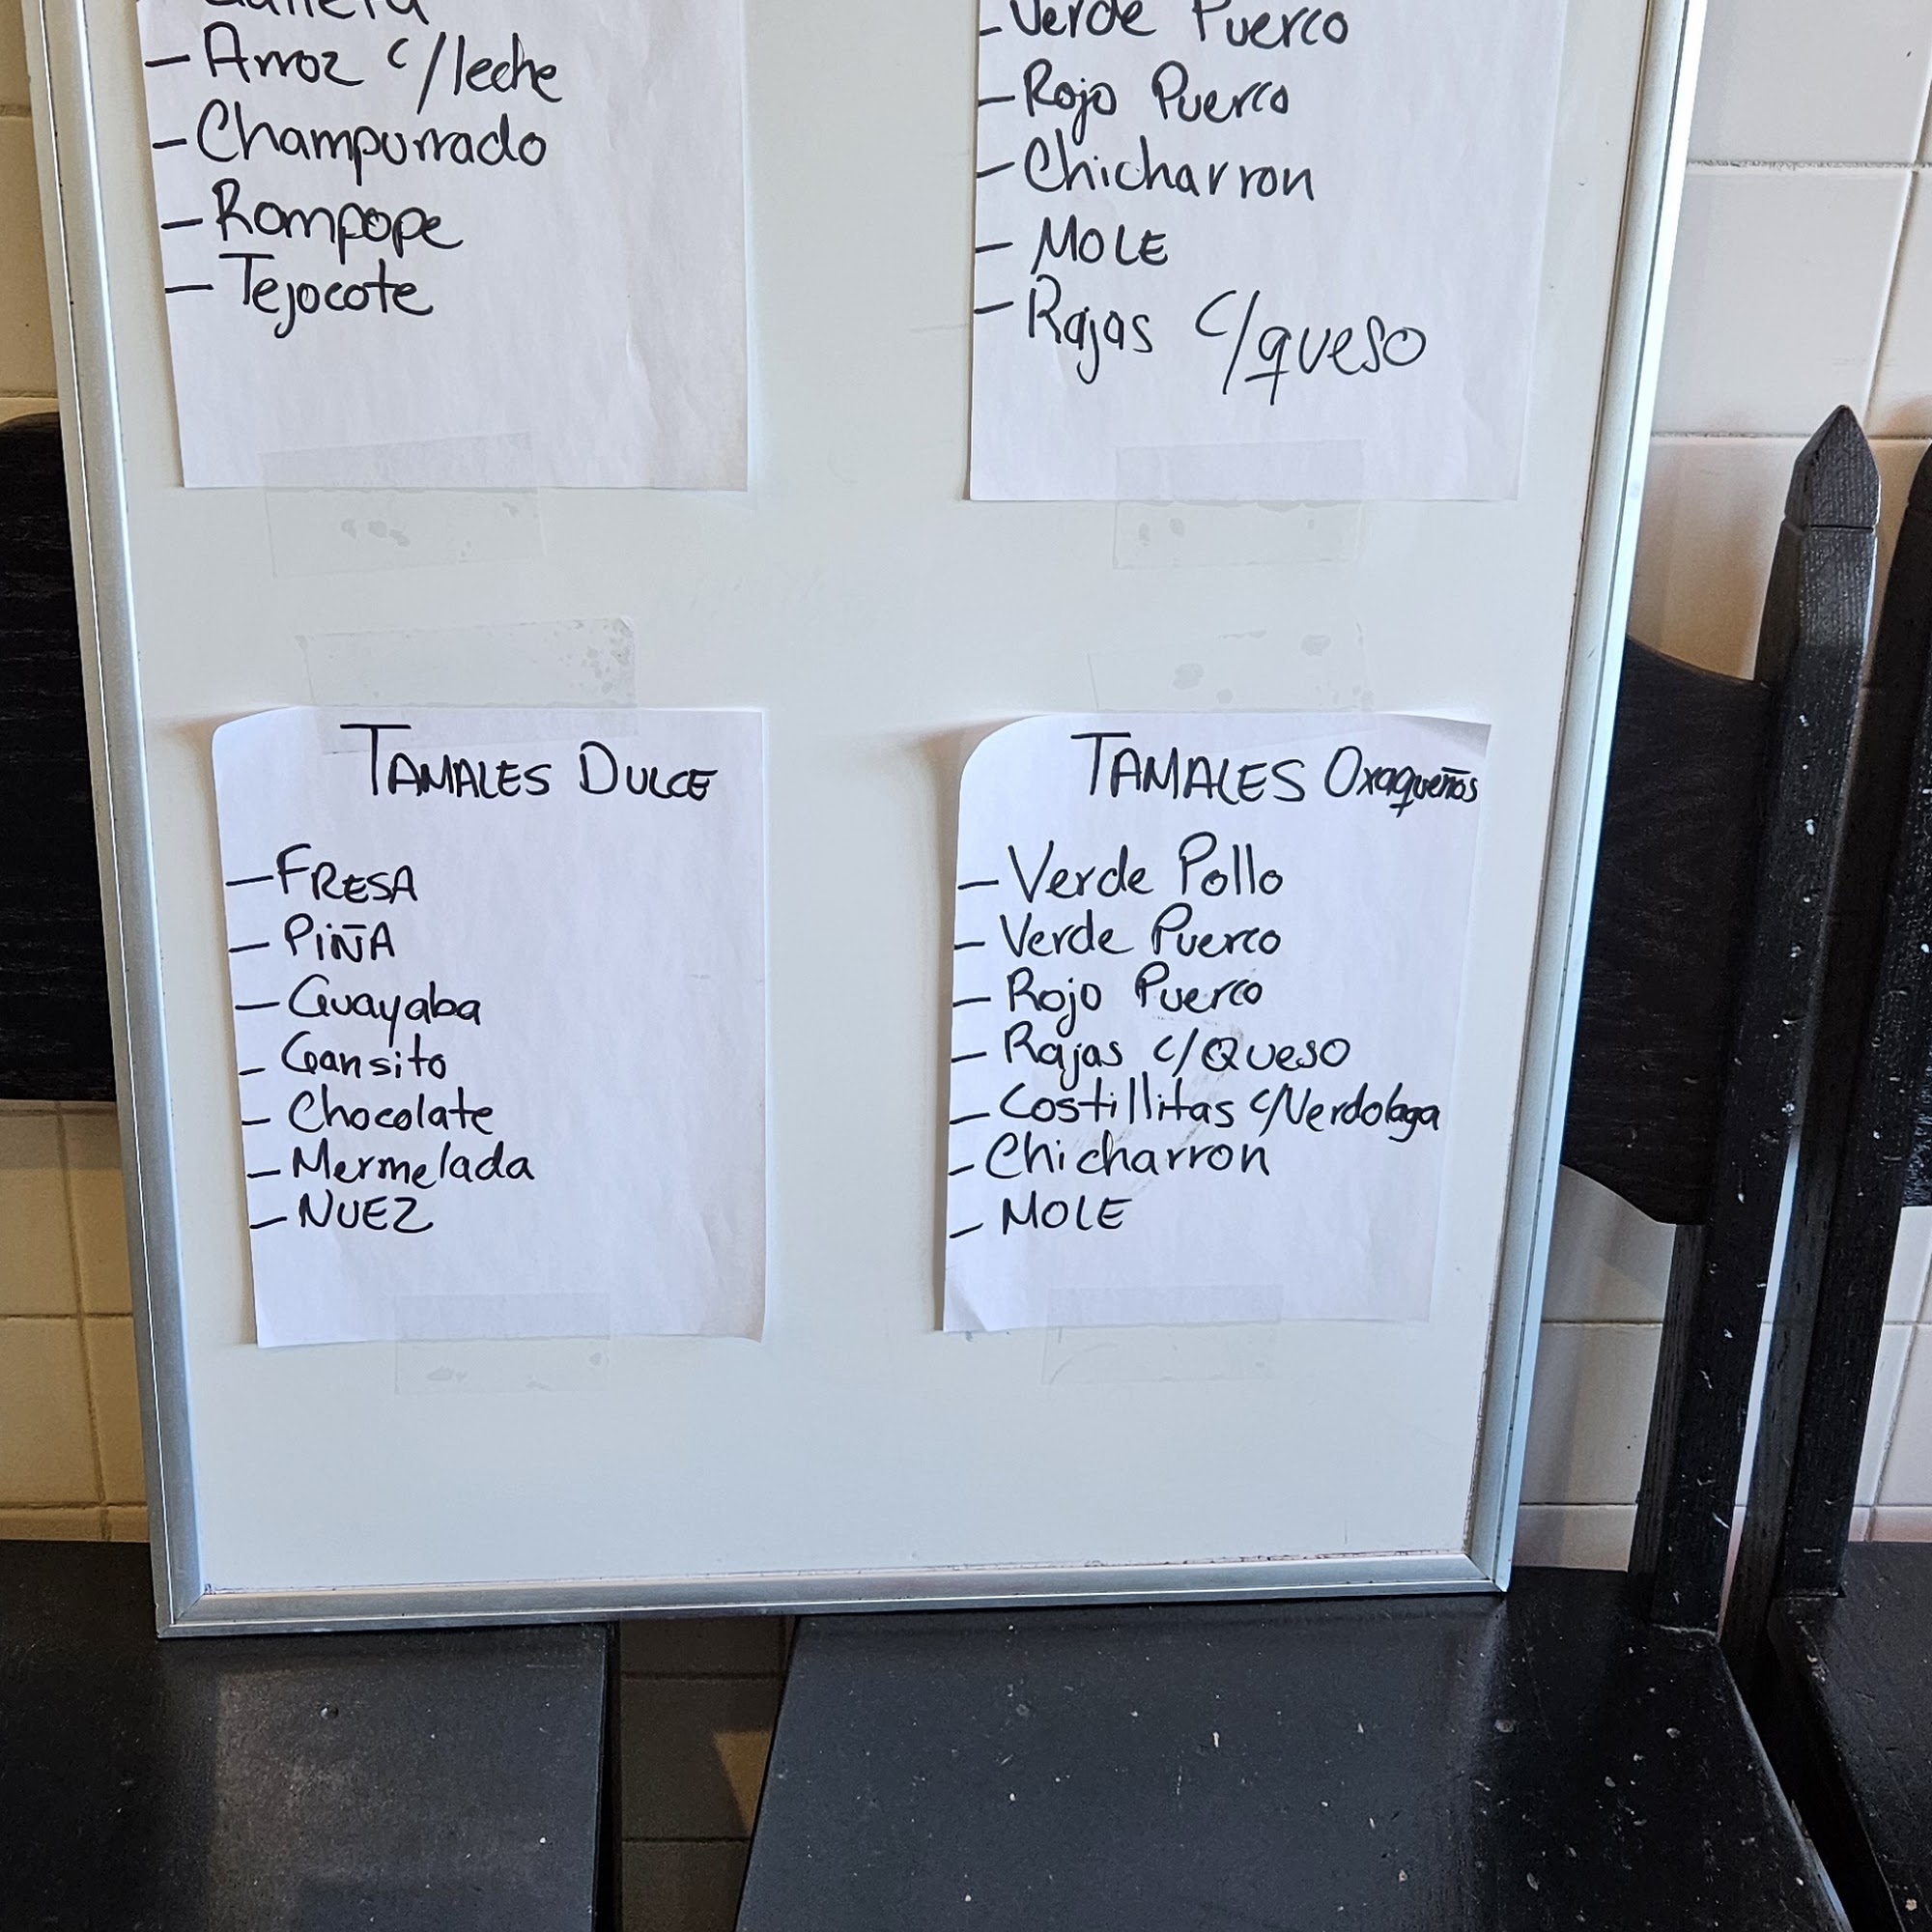 - Arroz c/leche
- Champurrado
- Rompope
- Tejocote
- Verde Puerco
- Rojo Puerco
- Chicharron
- MOLE
- Rajas c/queso
TAMALES DULCE
- FRESA
- PIÑA
- Guayaba
- Gansito
- Chocolate
- Mermelada
- NUEZ
TAMALES Oxaqueños
- Verde Pollo
- Verde Puerco
- Rojo Puerco
- Rajas c/Queso
- Costillitas c/Verdolaga
- Chicharron
- MOLE